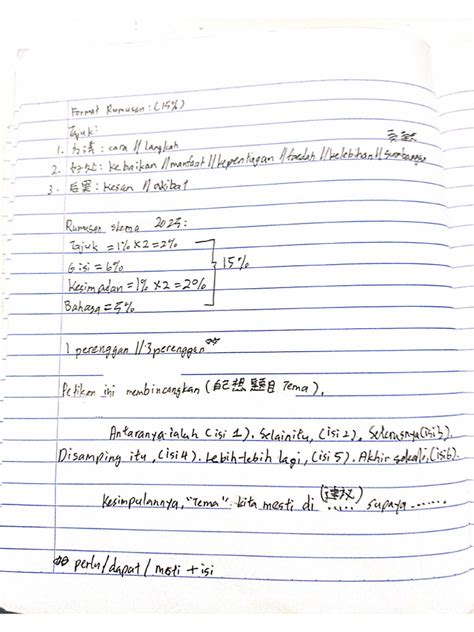 Format Rumusan : (15%)
Tajuk:
1. 方法 : cara // langkah
2. 好处 : kebaikan // manfaat // kepentingan // faedah // kelebihan // sumbangan
3. 后果 : kesan // akibat
Rumusan skema 2025:
Tajuk = 1% × 2 = 2%
6 isi = 6%
Kesimpulan = 1% × 2 = 2%
Bahasa = 5%
15%
1 perenggan // 3 perenggan
Petikan ini membincangkan (自己想题目 Tema).
Antaranya ialah (isi 1). Selain itu, (isi 2). Seterusnya (isi 3).
Disamping itu, (isi 4). Lebih-lebih lagi, (isi 5). Akhir sekali, (isi 6).
Kesimpulannya, "Tema" kita mesti di (建议) ..... supaya .......
perlu/dapat/mesti + isi